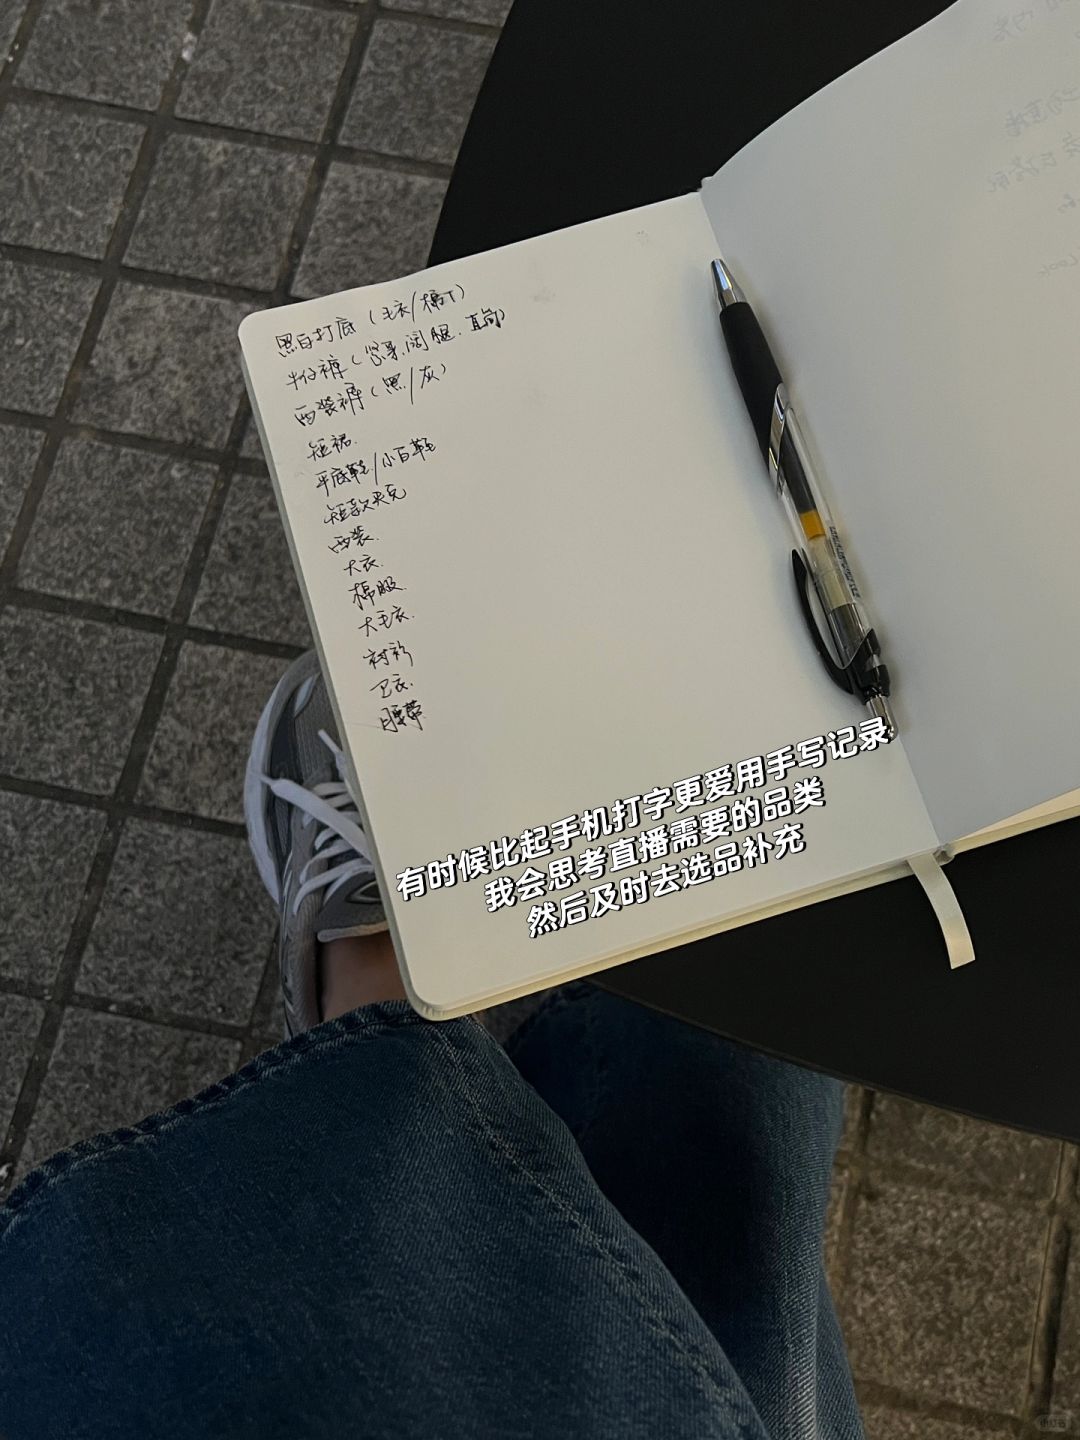 黑白打底（毛衣/棉T）
牛仔裤（紧身.阔腿.直筒）
西装裤（黑/灰）
短裙.
平底鞋/小白鞋
短款夹克
西装.
大衣.
棉服
大毛衣.
衬衫
卫衣.
腰带.
有时候比起手机打字更爱用手写记录
我会思考直播需要的品类
然后及时去选品补充
Look
小红书